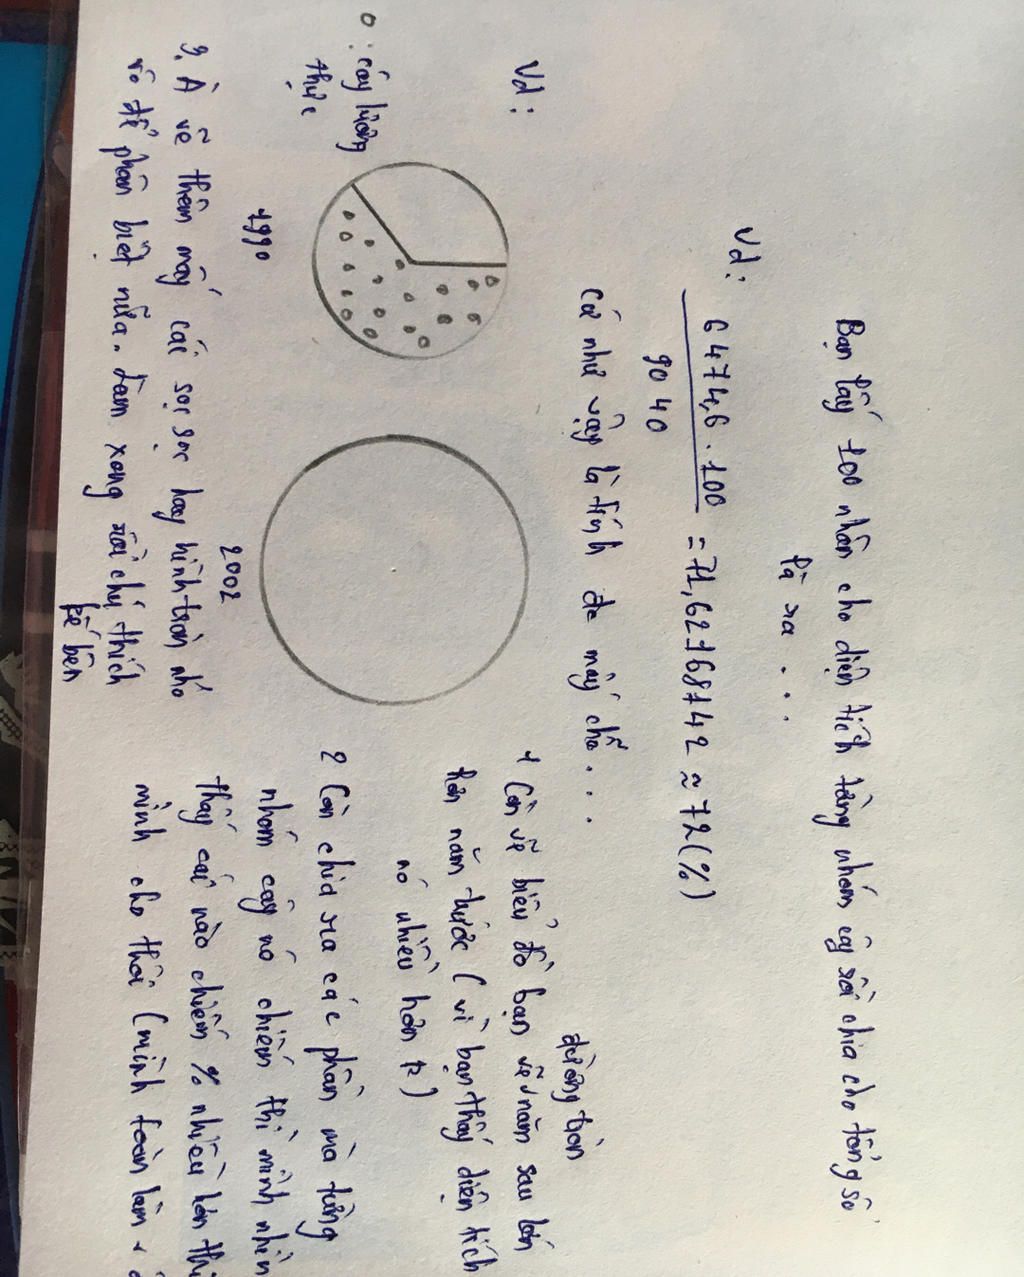 Bạn lấy 100 nhân cho diện tích từng nhóm cây rồi chia cho tổng số
là ra . . .
Vd:
6474,6 . 100
9040
= 71,62168142 ≈ 72(%)
Cứ như vậy là tính đc mấy chỗ . . .
Vd:
o : cây lương
thực
1990
2002
1 Còn vẽ biểu đồ bạn vẽ đường tròn năm sau lớn
hơn năm trước ( vì bạn thấy diện tích
nó nhiều hơn k )
2 Còn chia ra các phần mà từng
nhóm cây nó chiếm thì mình nhìn
thấy cái nào chiếm % nhiều hơn thì
mình cho thôi ( mình toàn làm
3. À vẽ thêm mấy cái sọc sọc hay hình tròn nhỏ
rồi để phân biệt nữa. Làm xong rồi chú thích
kế bên